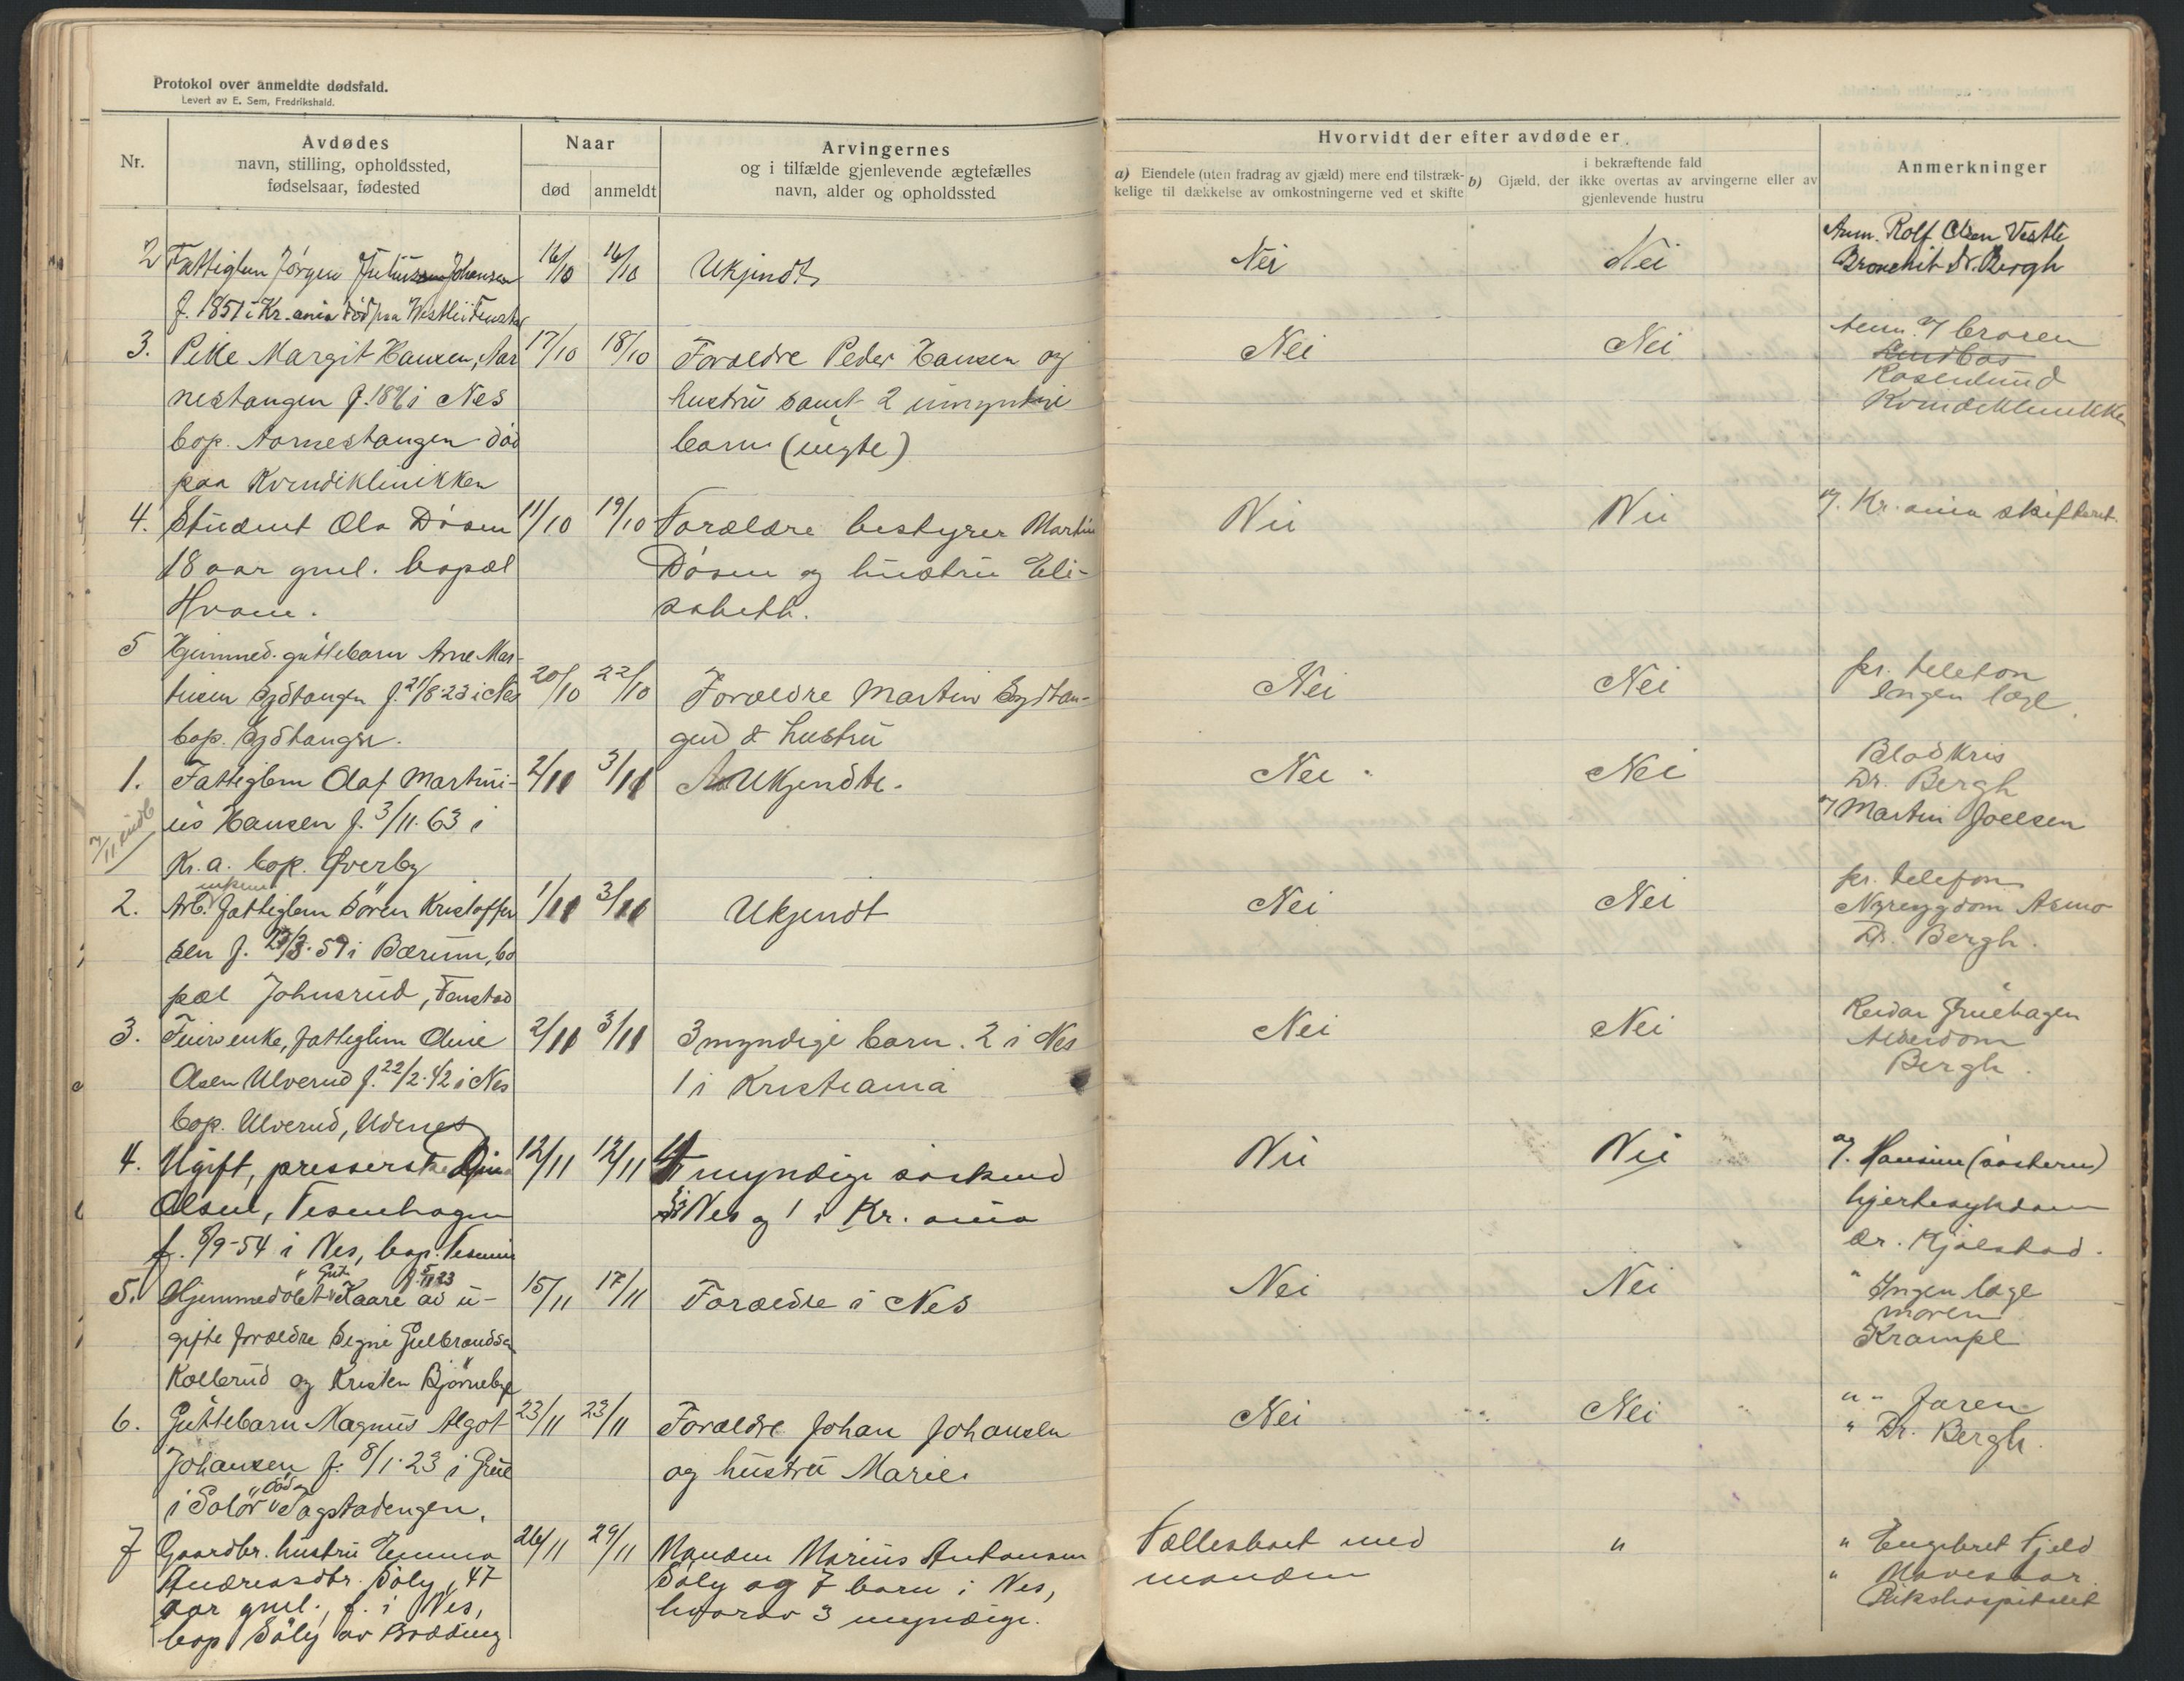 Protokol over anmeldte dødsfald.
Levert av E. Sem, Fredrikshald.
Nr.
Avdødes
navn, stilling, opholdssted,
fødselsaar, fødested
Naar
død
anmeldt
Arvingernes
og i tilfælde gjenlevende ægtefælles
navn, alder og opholdssted
Hvorvidt der efter avdøde er
a) Eiendele (uten fradrag av gjæld) mere end tilstræk-
kelige til dækkelse av omkostningerne ved et skifte
b) Gjæld, der
i bekræftende fald
ikke overtas av arvingerne eller av
gjenlevende hustru
Anmerkninger
2 Fattiglem Jørgen Johansen 16/10 16/10 Ukjendt Nei Nei Anm. Rolf Olsen Vestli
f. 1851 i Kr.ania død paa Bronchit Dr. Bergh
3. Pike Margit Hansen, Aar 17/10 18/10 Forældre Peder Hansen og Nei Nei
nestangen f. i Nes hustru samt 2
bop. Aarnestangen død barn (uegte) Rosenlund
paa Kvindeklinikken Kvindeklinikken
4. Student Ola Døsen 11/10 19/10 Forældre bestyrer Martin Nei Nei Kr.ania skifteret
18 aar gml. bopæl Døsen og hustru Eli-
Hvam. sabeth.
5 Hjemmed. guttebarn Arne Mar-
tinsen f. 21/8.23 i Nes 20/10 22/10 Forældre Martin Nei Nei pr. telefon
bop. & hustru Ingen læge
1. Fattiglem Olaf Martini- 2/11 3/11 Ukjendte. Nei Nei Blodkris
us Hansen f. 3/11.63 i Dr. Bergh
Kr.a. bop. Øverby Martin Joelsen
2. Arb. fattiglem Søren Kristoffer 1/11 3/11 Ukjendt Nei Nei pr. telefon
sen f. i Bærum, bo Nyresygdom Asmo
pæl Johnsrud, Fenstad Dr. Bergh.
3. enke, fattiglem Oline 2/11 3/11 3 myndige barn. 2 i Nes Nei Nei Reidar Gruehagen
Olsen Ulverud f. 22/2.42 i Nes 1 i Kristiania Alderdom
bop. Ulverud, Udenes Bergh.
4. Ugift, presserske 12/11 12/11 myndige søskend Nei Nei Hansine (søsteren)
Olsen, Tesenhagen Nes og 1 i Kr.ania hjertesykdom
f. 8/9-54 i Nes, bop. dr. Kjølstad.
5. Hjemmedøbt Gut Kaare av u- 15/11 17/11 Forældre i Nes Nei Nei " Ingen læge
gifte forældre Signe Gulbrandsen moren
Kolbrud og Kristen Bjørneby Krampe
6. Guttebarn Magnus Algot 23/11 23/11 Forældre Johan Johansen Nei Nei " " Faren
Johansen f. 8/1.23 i Grue og hustru Marie. " Dr. Bergh.
i Solør død Fagstadengen.
7 Gaardbr. hustru Emma 26/11 29/11 Manden Marius Antonsen Fællesboet med " " Engebret Fjeld
Andreasdtr. Søly, 47 Søly og 7 barn i Nes, manden " Mavesaar
aar gml., f. i Nes, hvorav 3 myndige. Rikshospitalet
bop Søly av Brødding